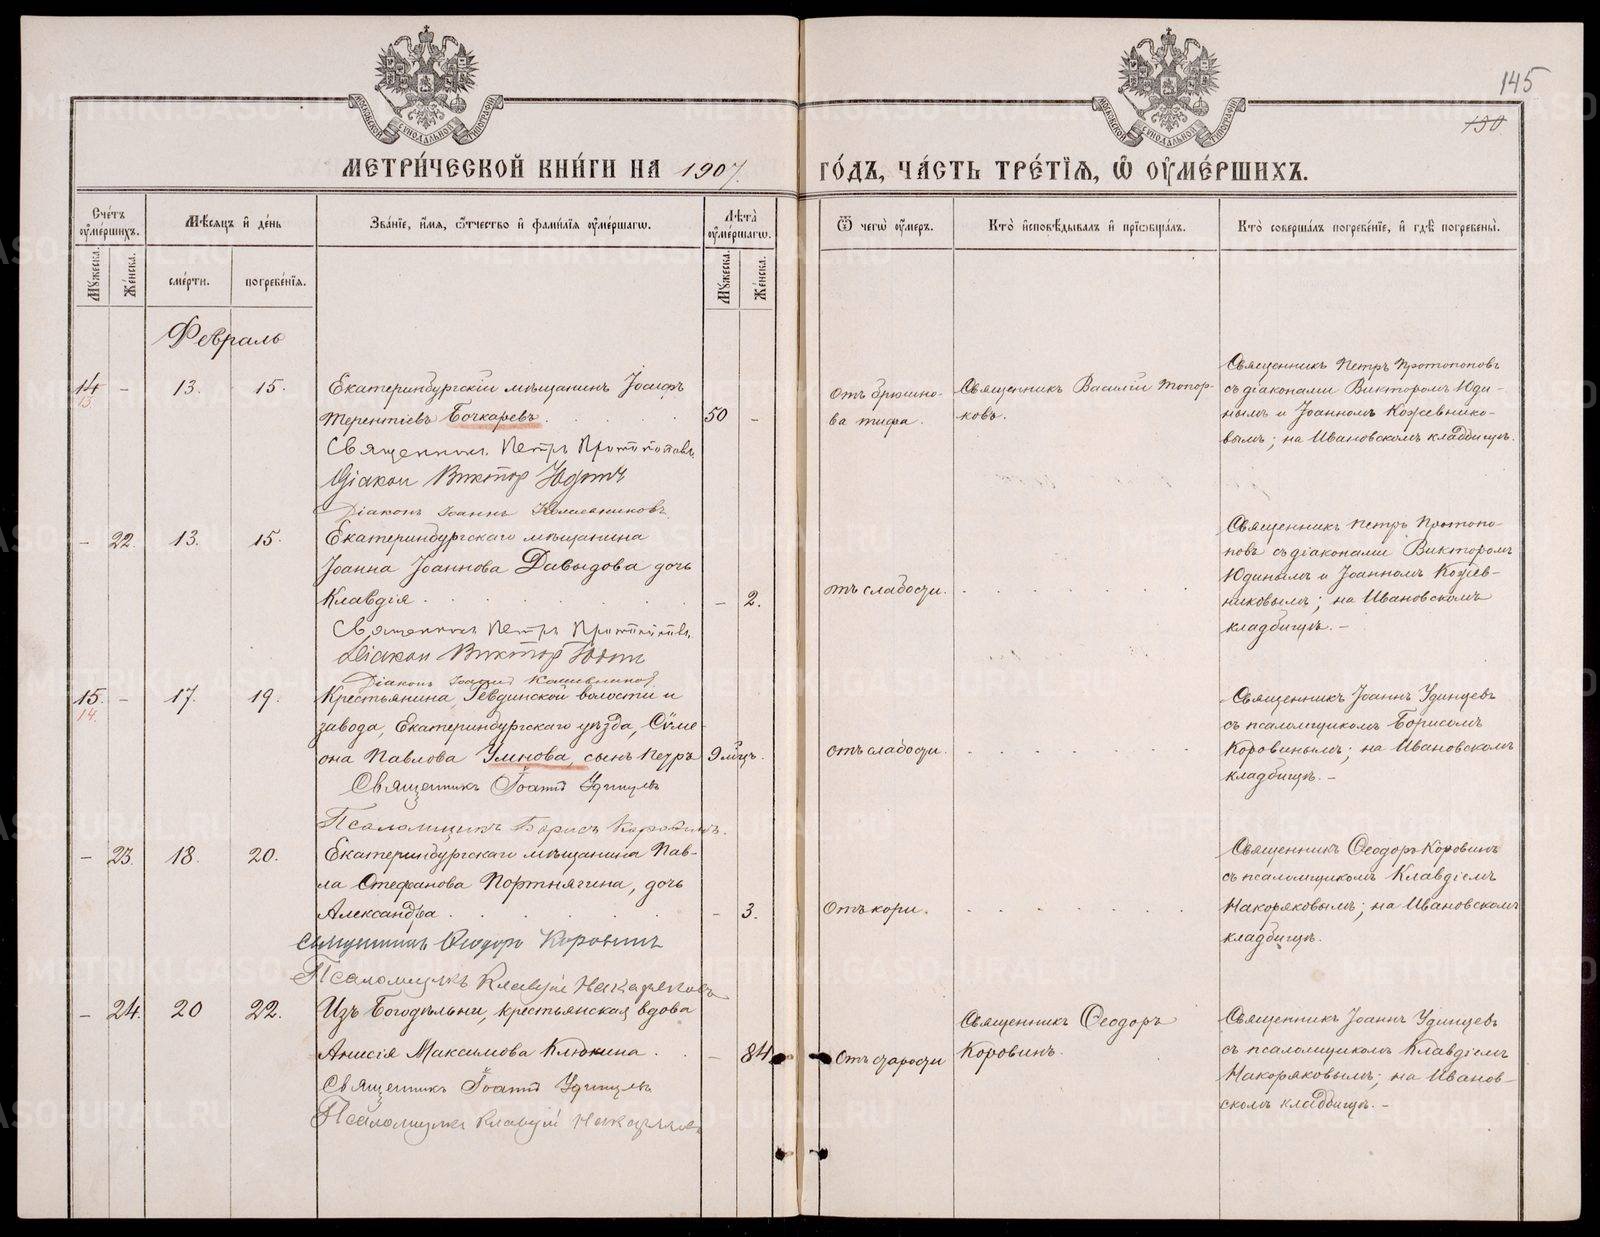 145
130
МОСКОВСКОЙ СУНОДАЛЬНОЙ ТИПОГРАФІИ
МОСКОВСКОЙ СУНОДАЛЬНОЙ ТИПОГРАФІИ
МЕТРИ́ЧЕСКОЙ КНИ́ГИ НА 1907 ГО́ДЪ, ЧА́СТЬ ТРЕ́ТІѦ, Ѽ ОУ҆МЕ́РШИХЪ.
Сче́тъ оу҆ме́ршихъ.
Мѣ́сѧцъ и҆ де́нь
Зва́нїе, и҆́мѧ, ѻ҆́тчество и҆ фами́лїѧ оу҆ме́ршагѡ.
Лѣ́та оу҆ме́ршагѡ.
Ѿ чегѡ̀ оу҆́меръ.
Кто̀ и҆сповѣ́дывалъ и҆ прїѡбща́лъ.
Кто̀ соверша́лъ погребе́нїе, и҆ гдѣ̀ погребены̀.
Мꙋ́жеска.
Же́нска.
сме́рти.
погребе́нїѧ.
Мꙋ́жеска.
Же́нска.
Февраль
14 - 13. 15. Екатеринбургскій мѣщанинъ Іосифъ
13
Терентіевъ Бочкаревъ. 50 -
Священник Петръ Протопоповъ
Діакон Виктор Юдинъ
Діаконъ Іоаннъ Кожевниковъ
Отъ брюшно-
ва тифа.
Священникъ Василій Топор-
ковъ.
Священникъ Петръ Протопоповъ
съ діаконами Викторомъ Юди-
нымъ и Іоанномъ Кожевнико-
вымъ; на Ивановскомъ кладбищѣ.
- 22. 13. 15. Екатеринбургскаго мѣщанина
Іоанна Іоаннова Давыдова дочь
Клавдія - 2.
Священник Петръ Протопоповъ
Діакон Виктор Юдин
Діаконъ Іоаннъ Кожевников
отъ слабости.
Священникъ Петръ Протопо-
повъ съ діаконами Викторомъ
Юдинымъ и Іоанномъ Кожев-
никовымъ; на Ивановскомъ
кладбищѣ. -
15. - 17. 19. Крестьянина Ревдинской волости и
14.
завода, Екатеринбургскаго уѣзда, Сѵме-
она Павлова Умнова, сынъ Петръ 9 мѣц.
Священникъ Іоаннъ Удинцевъ
Псаломщикъ Борисъ Коровинъ.
отъ слабости.
Священникъ Іоаннъ Удинцевъ
съ псаломщикомъ Борисомъ
Коровинымъ; на Ивановскомъ
кладбищѣ. -
- 23. 18. 20. Екатеринбургскаго мѣщанина Пав-
ла Стефанова Портнягина, дочь
Александра - 3.
Священникъ Ѳеодоръ Коровинъ
Псаломщикъ Клавдій Накоряковъ
Отъ кори.
Священникъ Ѳеодоръ Коровинъ
съ псаломщикомъ Клавдіемъ
Накоряковымъ; на Ивановскомъ
кладбищѣ.
- 24. 20 22. Изъ Богодѣльни, крестьянская вдова
Анисія Максимова Клюкина. - 84.
Священникъ Іоаннъ Удинцевъ
Псаломщикъ Клавдій Накоряковъ
Отъ старости
Священникъ Ѳеодоръ
Коровинъ.
Священникъ Іоаннъ Удинцевъ
съ псаломщикомъ Клавдіемъ
Накоряковымъ; на Иванов-
скомъ кладбищѣ. -
METRIKI.GASO-URAL.RU